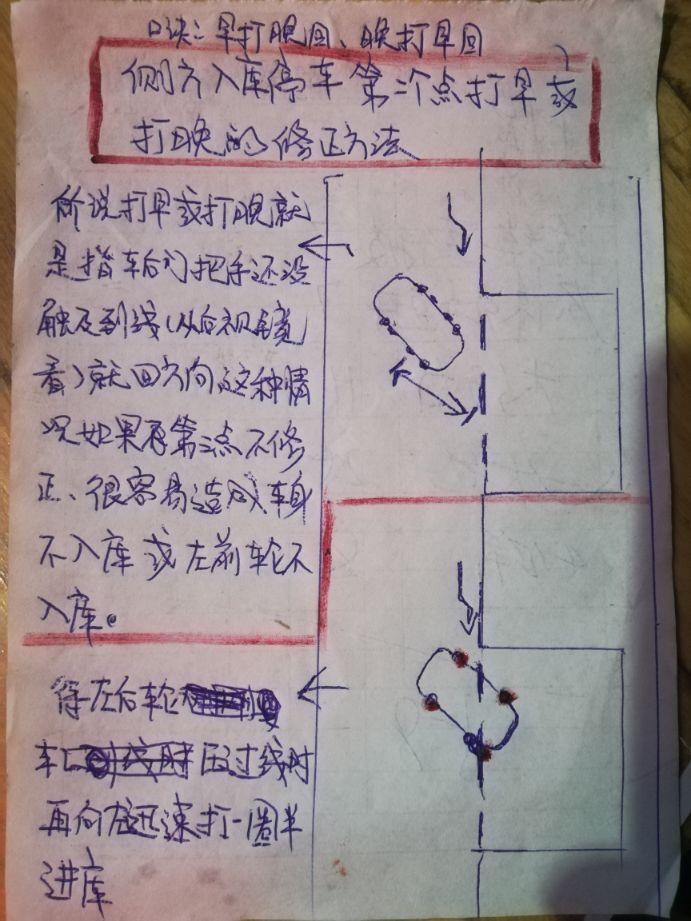 口诀：早打晚回、晚打早回
侧方入库停车第二个点打早或
打晚的修正方法
所说打早或打晚就
是指车后门把手还没
触及到线（从后视镜
看）就回方向，这种情
况如果再第二点不修
正、很容易造成车身
不入库或左前轮不
入库。
等左后轮
车 压过线时
再向左迅速打一圈半
进库